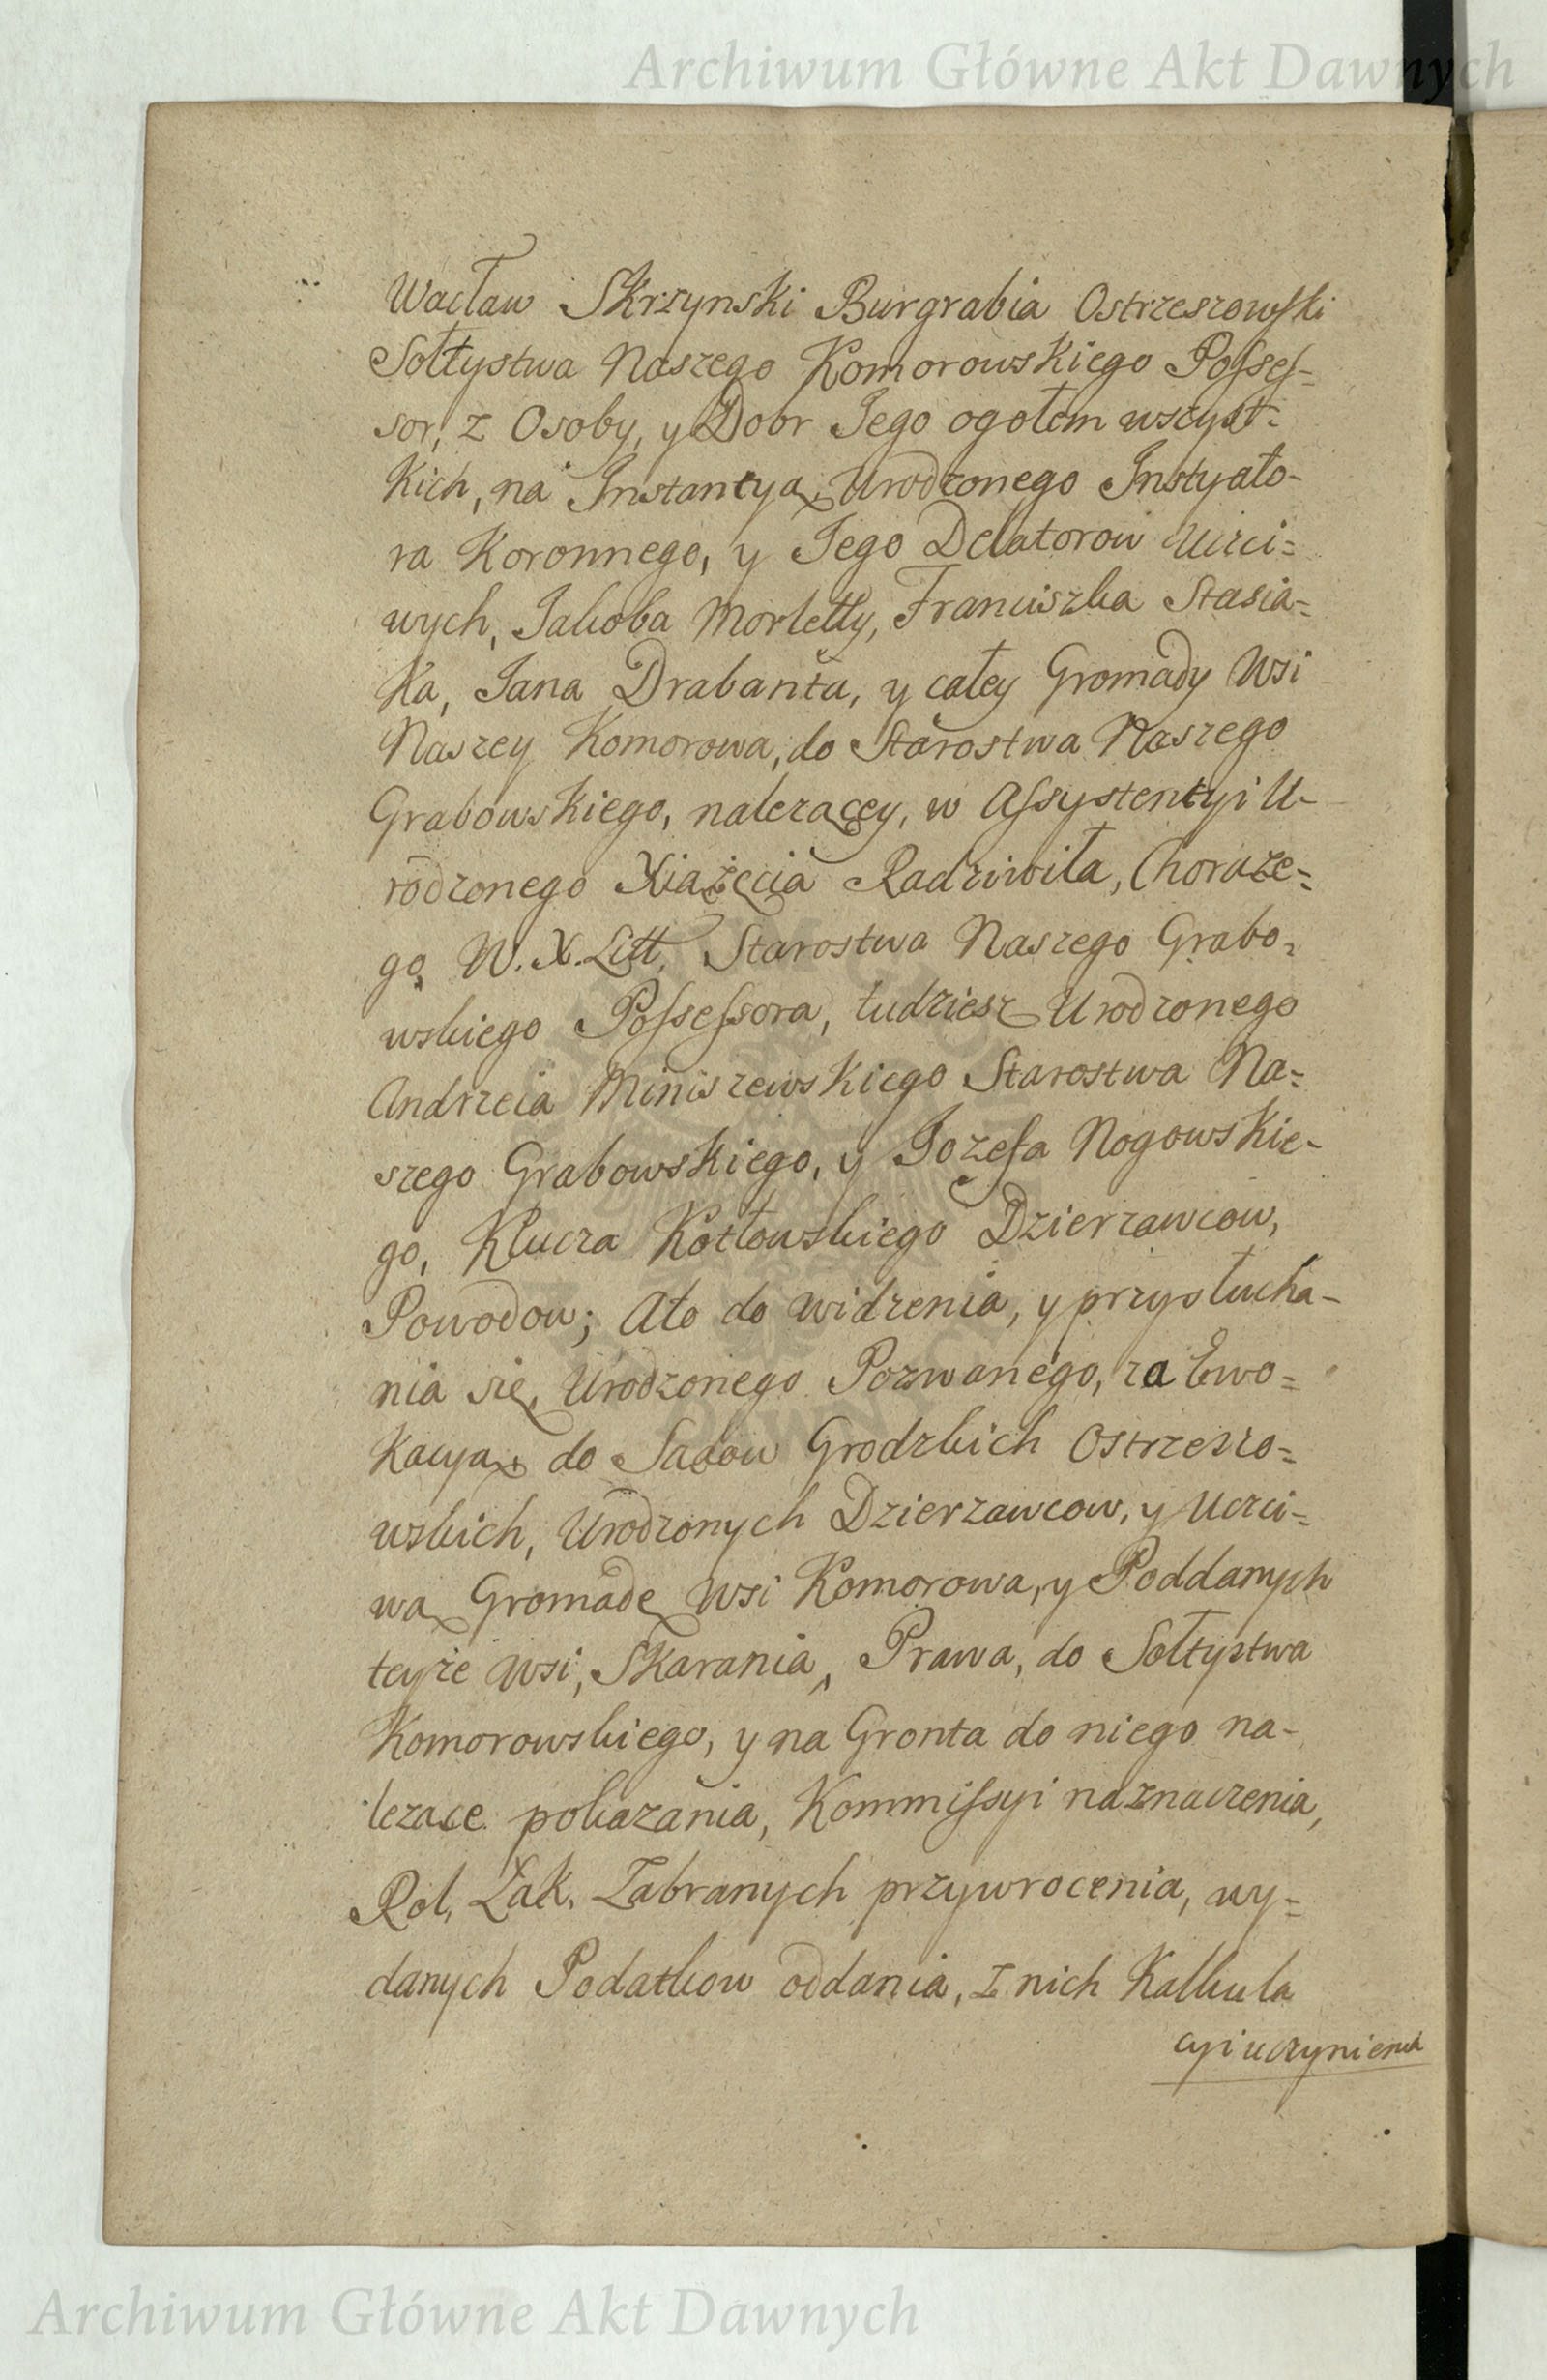 Archiwum Główne Akt Dawnych
Wacław Skrzynski Burgrabia Ostrzeszowski
Sołtystwa Naszego Komorowskiego Posses=
sor, z Osoby, y Dobr Jego ogołem wszyst=
kich, na Instantyą Urodzonego Instygato-
ra Koronnego, y Jego Delatorow Uczci=
wych, Jakoba Morletty, Franciszka Stasia=
ka, Jana Drabanta, y całey Gromady Wsi
Naszey Komorowa, do Starostwa Naszego
Grabowskiego, nalezącey, w Assystentyi U-
rodzonego Xiążęcia Radziwiła, Chorąże=
go W. X. Litt. Starostwa Naszego Grabo=
wskiego Possessora, tudziesz Urodzonego
Andrzeia Miniszewskiego Starostwa Na=
szego Grabowskiego, y Jozefa Nogowskie-
go, Klucza Kotłowskiego Dzierzawcow,
Powodow; Ato do widzenia, y przysłucha-
nia się, Urodzonego Pozwanego, za Ewo=
kacyą do Sądow Grodzkich Ostrzeszo=
wskich, Urodzonych Dzierzawcow, y Uczci=
wą Gromadę Wsi Komorowa, y Poddanych
teyże Wsi, Skarania, Prawa, do Sołtystwa
Komorowskiego, y na Gronta do niego na-
lezące pokazania, Kommissyi naznaczenia,
Rol, Łąk, Zabranych przywrocenia, wy=
danych Podatkow oddania, z nich Kalkula
cyi uczynienia
Archiwum Główne Akt Dawnych